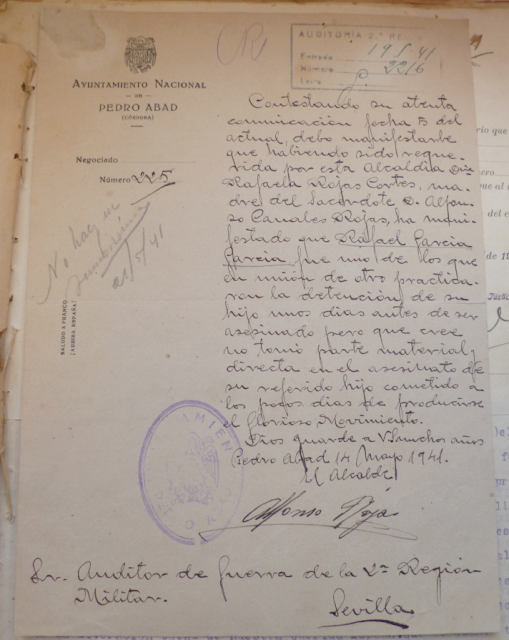 AUDITORÍA 2.ª RE
Entrada 19 5 41
Número 2216
Letra P.
AYUNTAMIENTO NACIONAL
DE
PEDRO ABAD
(CÓRDOBA)
Negociado
Número 225
No hay
21/5/41
SALUDO A FRANCO
¡ARRIBA ESPAÑA!
Contestando su atenta
comunicación fecha 5 del
actual, debo manifestarle
que habiendo sido reque-
rida por esta Alcaldía Dña
Rafaela Rojas Cortes, ma-
dre del Sacerdote D. Alfon-
so Canales Rojas, ha mani-
festado que Rafael Garcia
Garcia fue uno de los que
en unión de otro practica-
ron la detención de su
hijo unos dias antes de ser
asesinado pero que cree
no tomó parte material y
directa en el asesinato de
su referido hijo cometido a
los pocos dias de producirse
el Glorioso Movimiento.
Dios guarde a V. muchos años
Pedro Abad 14 Mayo 1941.
El Alcalde
Alfonso Rojas
Sr. Auditor de Guerra de la 2ª Región
Militar.
Sevilla